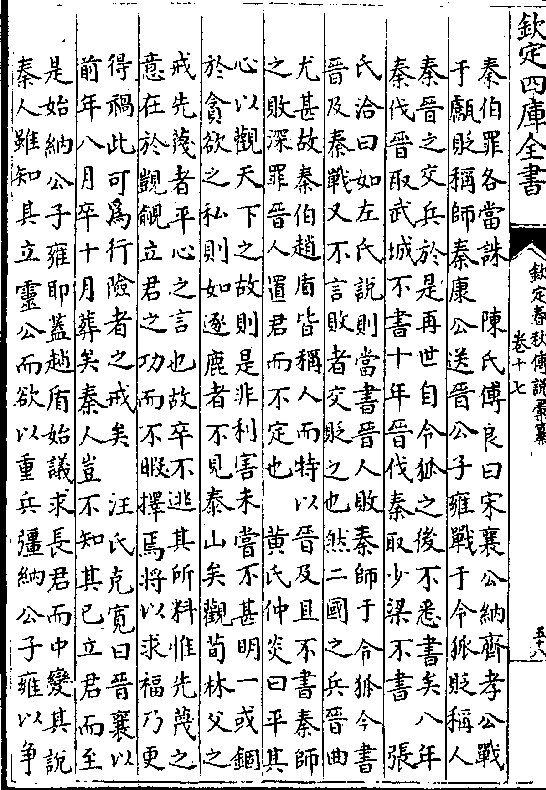 欽定四庫全書
欽定春秋傳說彙纂
卷十七
五十八
秦伯罪各當誅　陳氏傅良曰宋襄公納齊孝公戰
于甗貶稱師秦康公送晉公子雍戰于令狐貶稱人
秦晉之交兵於是再世自令狐之後不悉書矣八年
秦伐晉取武城不書十年晉伐秦取少梁不書　張
氏洽曰如左氏說則當書晉人敗秦師于令狐今書
晉及秦戰又不言敗者交貶之也然二國之兵晉曲
尤甚故秦伯趙盾皆稱人而特以晉及且不書秦師
之敗深罪晉人置君而不定也　黃氏仲炎曰平其
心以觀天下之故則是非利害未嘗不甚明一或錮
於貪欲之私則如逐鹿者不見泰山矣觀荀林父之
戒先蔑者平心之言也故卒不逃其所料惟先蔑之
意在於覬覦立君之功而不暇擇焉將以求福乃更
得禍此可為行險者之戒矣　汪氏克寬曰晉襄以
前年八月卒十月葬矣秦人豈不知其已立君而至
是始納公子雍即蓋趙盾始議求長君而中變其說
秦人雖知其立靈公而欲以重兵彊納公子雍以爭